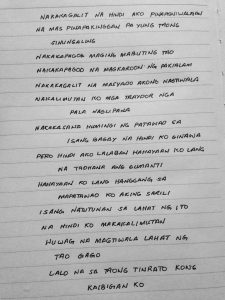 NAKAKAGALIT NA HINDI AKO PINANINIWALAAN
NA MAS PINAPAKINGGAN PA YUNG TAONG
SINUNGALING
NAKAKAPAGOD MAGING MABUTING TAO
NAKAKAPAGOD NA MAGKAROON NG PAKIALAM
NAKAKAGALIT NA MASYADO AKONG NAGTIWALA
NAKALIMUTAN KO MGA TRAYDOR NGA
PALA NAGLIPANA
NAKAKASAWA HUMINGI NG PATAWAD SA
ISANG BAGAY NA HINDI KO GINAWA
PERO HINDI AKO LALABAN HAHAYAAN KO LANG
NA TADHANA ANG GUMANTI
HAHAYAAN KO LANG HANGGANG SA
MAPATAWAD KO AKING SARILI
ISANG NATUTUNAN SA LAHAT NG ITO
NA HINDI KO MAKAKALIMUTAN
HUWAG NA MAGTIWALA LAHAT NG
TAO GAGO
LALO NA SA TAONG TINRATO KONG
KAIBIGAN KO